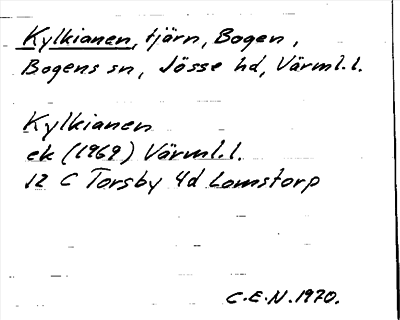 Kylkianen, tjärn, Bogen,
Bogens sn, Jösse hd, Värml.l.
Kylkianen
ek (1969) Värml.l.
12 C Torsby 4d Lomstorp
C.E.N. 1970.